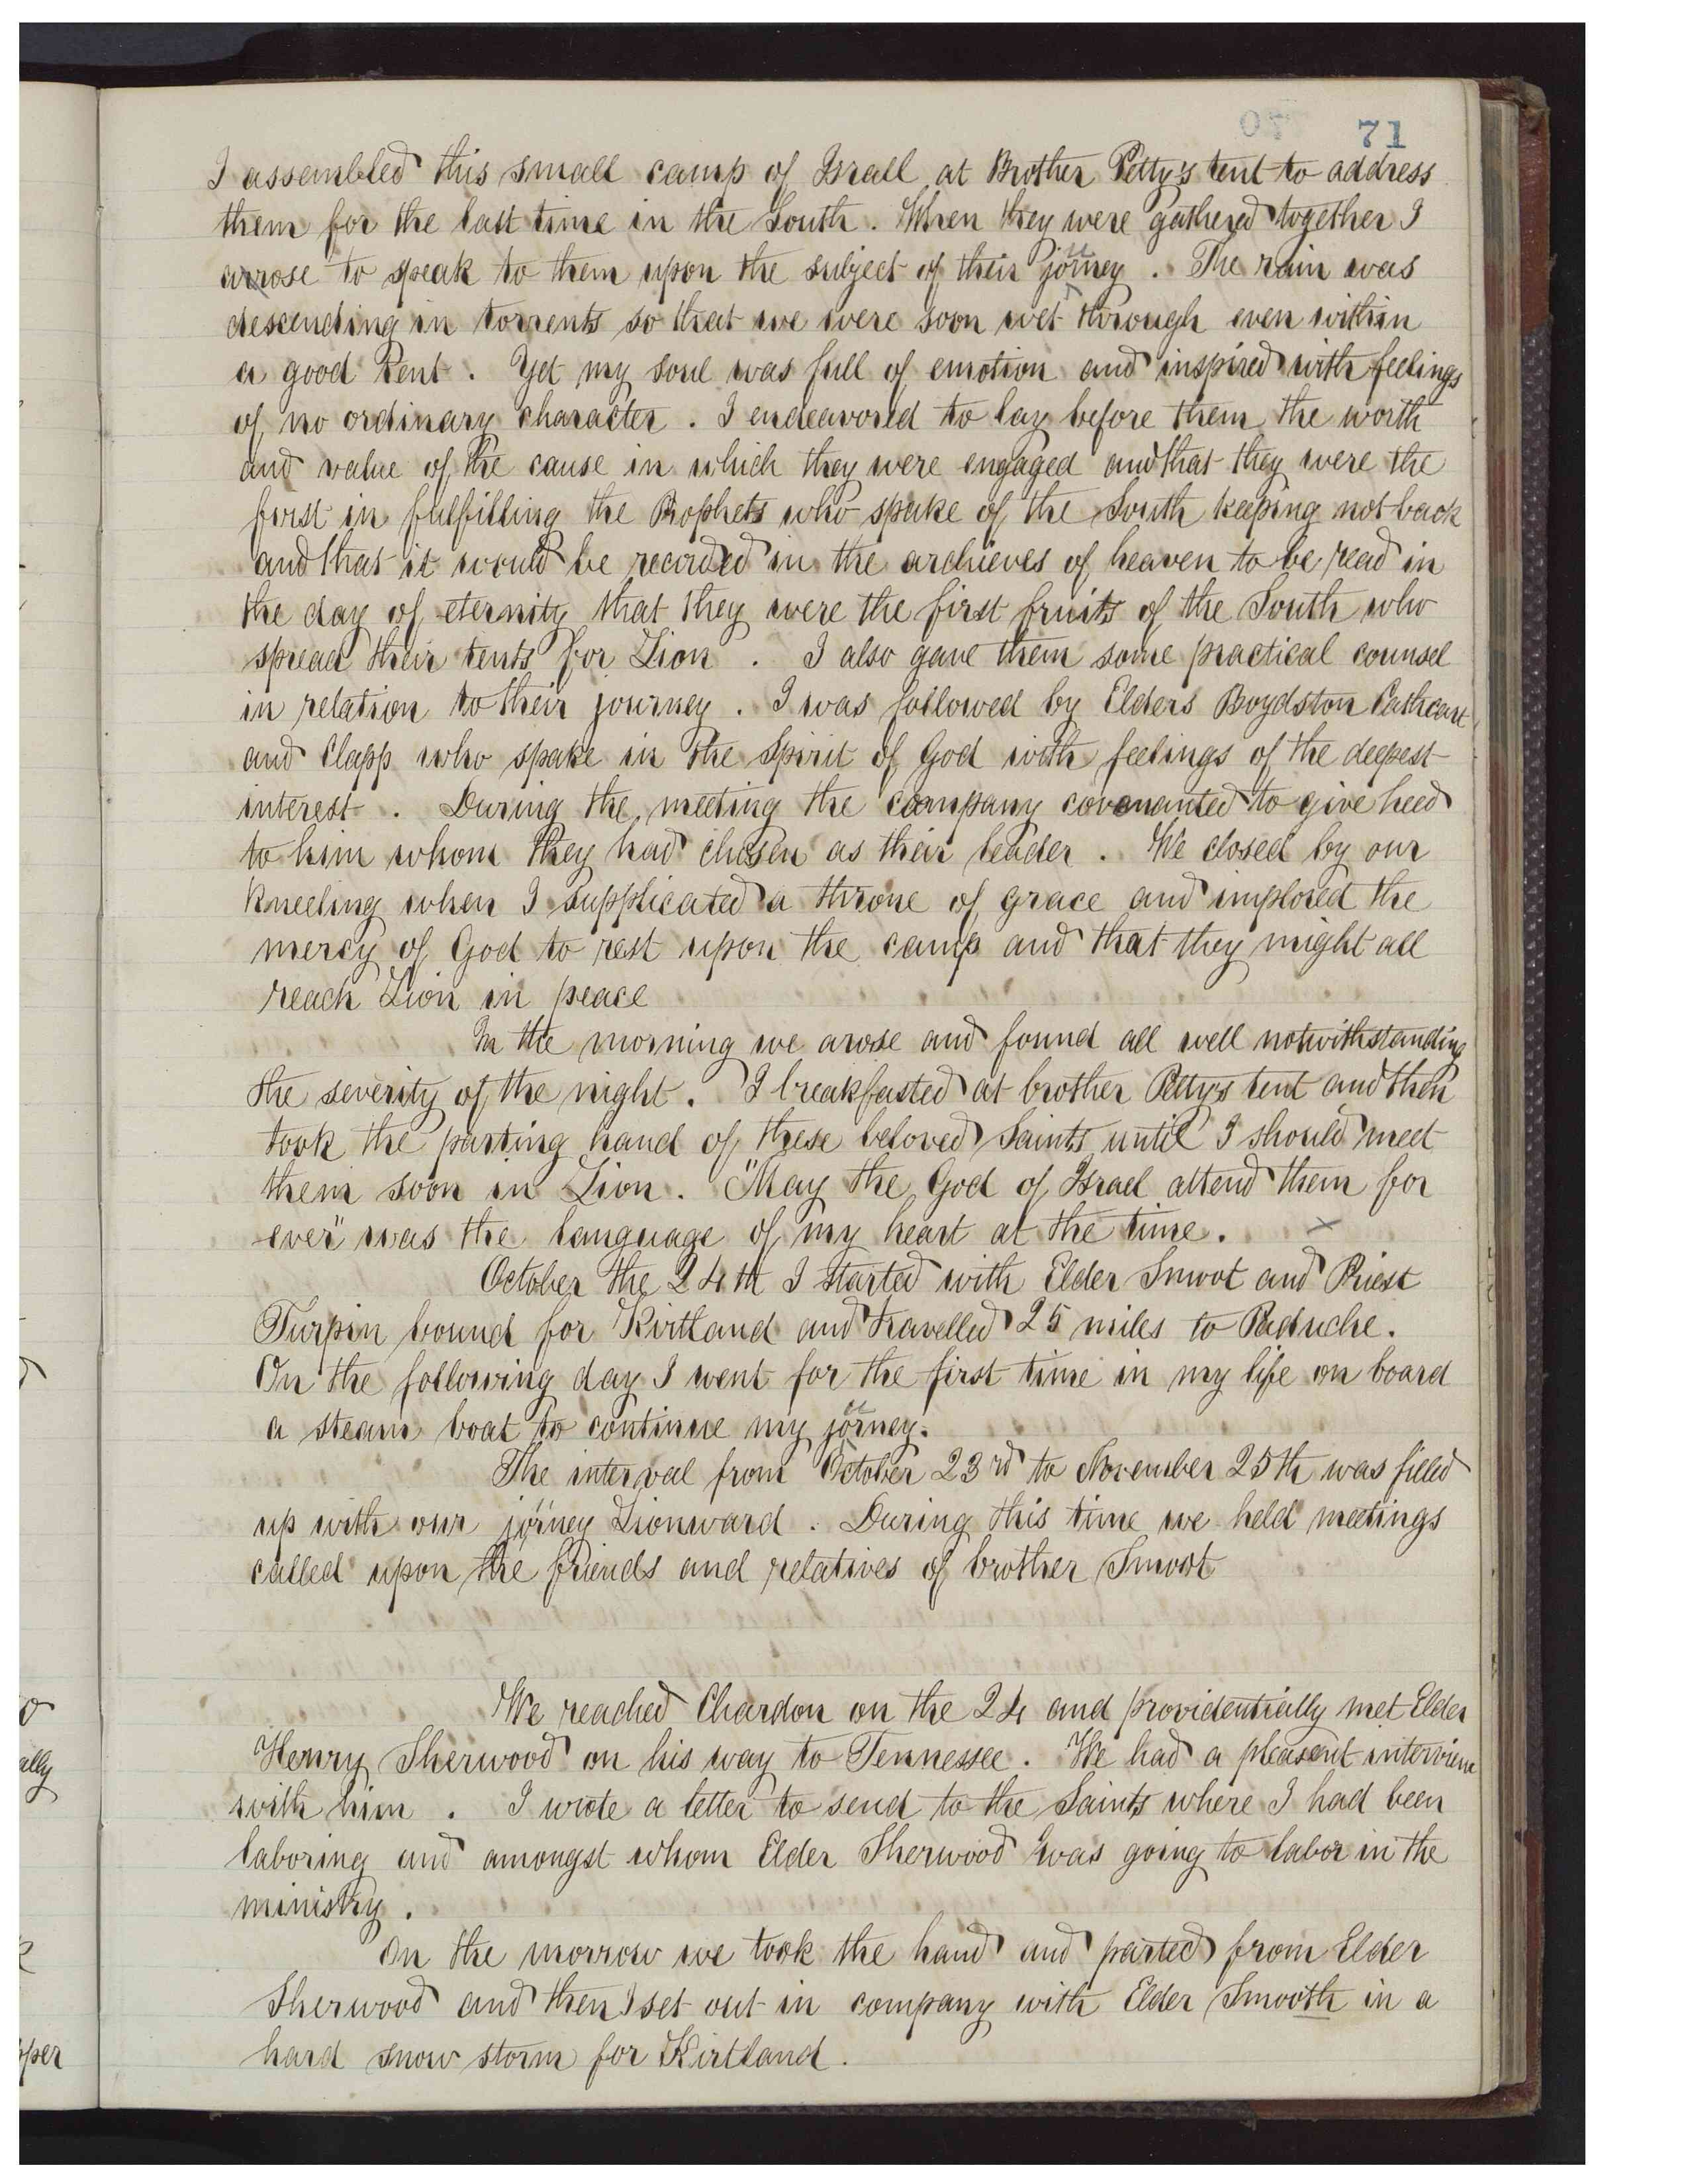 70 71
I assembled this small camp of Israll at Brother Petty's tent to address
them for the last time in the South. When they were gathered together I
arrose to speak to them upon the subject of their journey. The rain was
descending in torrents so that we were soon wet through even within
a good tent. Yet my soul was full of emotion and inspired with feelings
of no ordinary character. I endeavored to lay before them the worth
and value of the cause in which they were engaged and that they were the
first in fulfilling the Prophets who spake of the South keeping not back
and that it would be recorded in the archieves of heaven to be read in
the day of eternity that they were the first fruits of the South who
spread their tents for Zion. I also gave them some practical counsel
in relation to their journey. I was followed by Elders Boydston Cathcart
and Clapp who spake in the Spirit of God with feelings of the deepest
interest. During the meeting the company covenanted to give heed
to him whom they had chosen as their leader. We closed by our
kneeling when I supplicated a throne of grace and implored the
mercy of God to rest upon the camp and that they might all
reach Zion in peace
In the morning we arose and found all well notwithstanding
the severity of the night. I breakfasted at brother Pettys tent and then
took the parting hand of these beloved Saints until I should meet
them soon in Zion. "May the God of Israel attend them for
ever" was the language of my heart at the time. x
October the 24th I started with Elder Smoot and Priest
Turpin bound for Kirtland and travelled 25 miles to Paduche.
On the following day I went for the first time in my life on board
a steam boat to continue my journey.
The interval from October 23rd to November 25th was filled
up with our journey Zionward. During this time we held meetings
called upon the friends and relatives of brother Smoot
We reached Chardon on the 24 and providentially met Elder
Henry Sherwood on his way to Tennessee. We had a pleasent interview
with him. I wrote a letter to send to the Saints where I had been
laboring and amongst whom Elder Sherwood was going to labor in the
ministry.
On the morrow we took the hand and parted from Elder
Sherwood and then I set out in company with Elder Smooth in a
hard snow storm for Kirtland.
o
ally
per